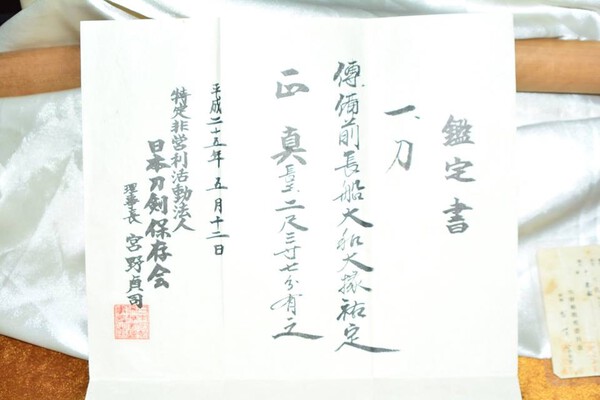 鑑定書
一、刀
傳備前長船大和大掾祐定
正真 長サ二尺三寸七分有之
平成二十五年五月十二日
特定非営利活動法人
日本刀剣保存会
理事長 宮野貞司